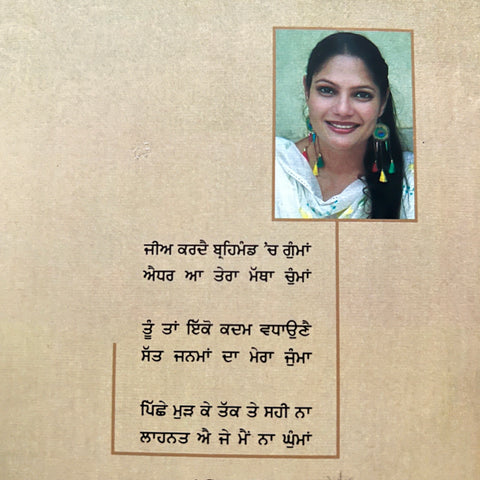 ਜੀਅ ਕਰਦੈ ਬ੍ਰਹਿਮੰਡ 'ਚ ਗੁੰਮਾਂ
ਐਧਰ ਆ ਤੇਰਾ ਮੱਥਾ ਚੁੰਮਾਂ
ਤੂੰ ਤਾਂ ਇੱਕੋ ਕਦਮ ਵਧਾਉਣੈ
ਸੱਤ ਜਨਮਾਂ ਦਾ ਮੇਰਾ ਜੁੰਮਾ
ਪਿੱਛੇ ਮੁੜ ਕੇ ਤੱਕ ਤੇ ਸਹੀ ਨਾ
ਲਾਹਨਤ ਐ ਜੇ ਮੈਂ ਨਾ ਘੁੰਮਾਂ